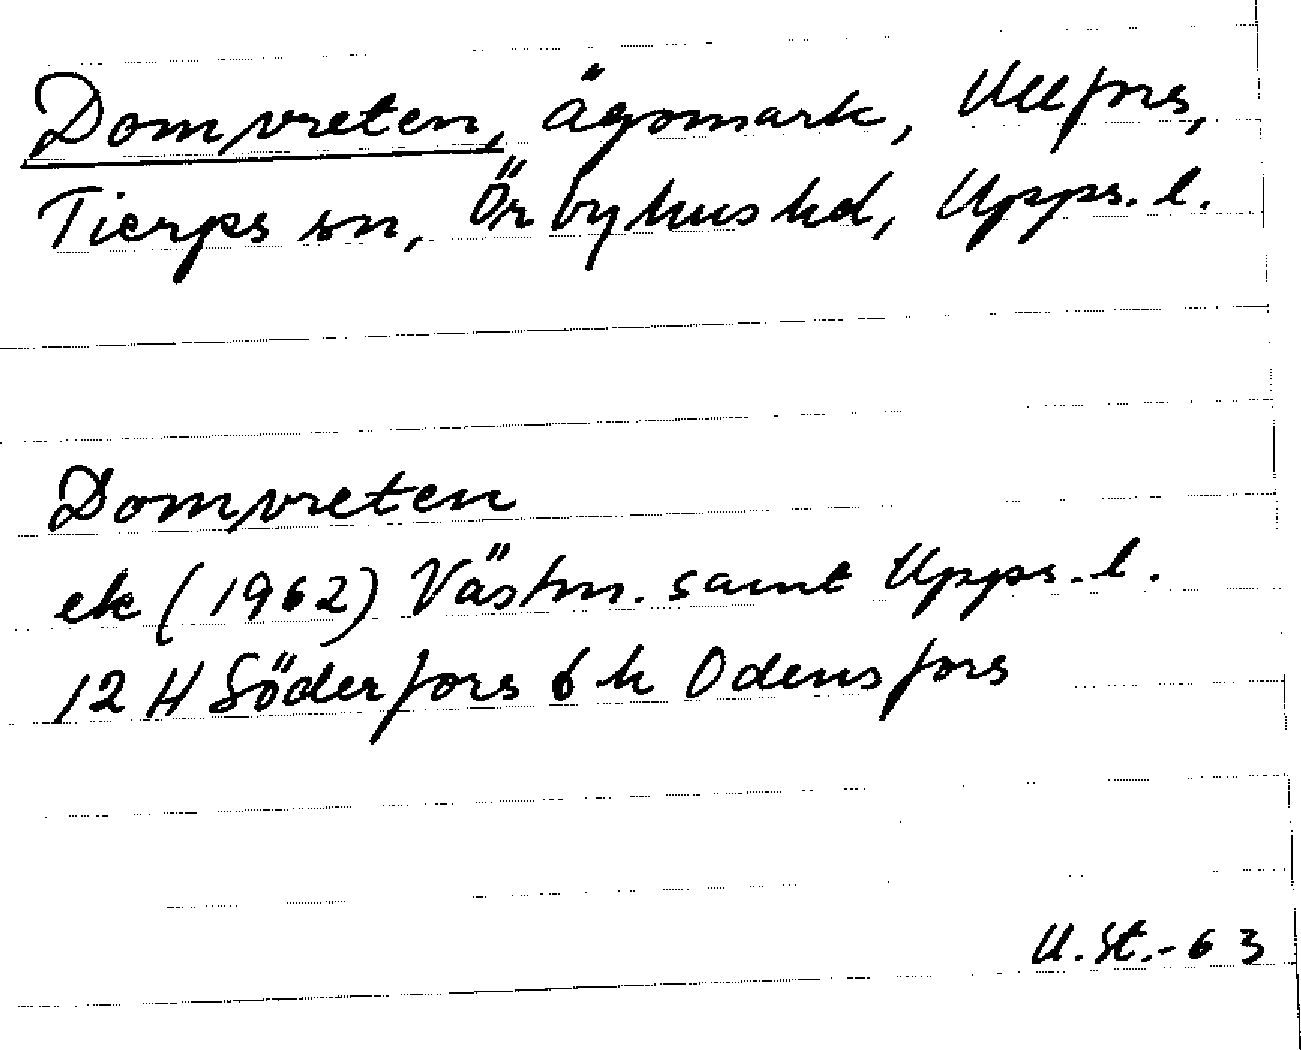 Domvreten, ägomark, Ullfors,
Tierps sn, Örbyhus hd, Upps. l.
Domvreten
ek (1962) Västm. samt Upps. l.
12 H Söderfors 6 h Odensfors
U. St. -63